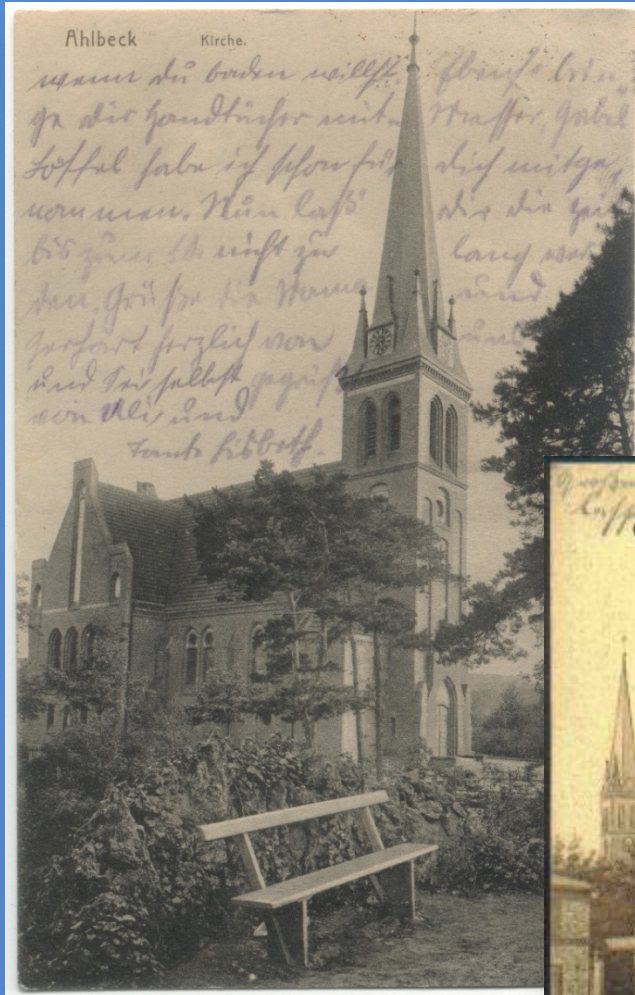 Ahlbeck Kirche.
wenn du baden willst. Ebenso brin
ge dir Handtücher mit. Messer, Gabel
Löffel habe ich schon für dich mitge
nommen. Nun laß dir die
bis zum nicht zu lang wer
den. Grüße die Mama und
Gerhart herzlich von uns
und sei selbst gegrüßt
von und
Tante Lisbeth.